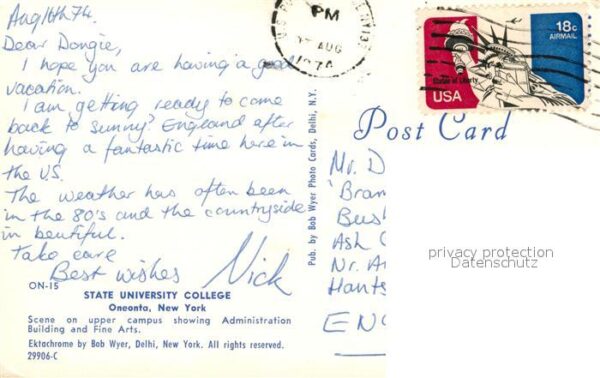 Aug 16th 74.
Dear Dongie,
I hope you are having a good
vacation.
I am getting ready to come
back to sunny? England after
having a fantastic time here in
the U.S.
The weather has often been
in the 80's and the countryside
in beutiful.
Take care
Best wishes Nick
ON-15
STATE UNIVERSITY COLLEGE
Oneonta, New York
Scene on upper campus showing Administration
Building and Fine Arts.
Ektachrome by Bob Wyer, Delhi, New York. All rights reserved.
29906-C
Pub. by Bob Wyer Photo Cards, Delhi, N.Y.
PM
AUG
1974
18c
AIRMAIL
Statue of Liberty
USA
Post Card
Mr. D
Bran
Bus
Ash
Nr. A
Hants
EN
privacy protection
Datenschutz